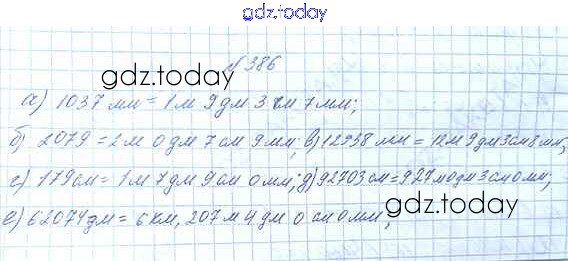 gdz.today
№386
gdz.today
а) 1037 мм = 1 м 9 дм 3 см 7 мм;
б) 2079 = 2 м 0 дм 7 см 9 мм; в) 12938 мм = 12 м 9 дм 3 см 8 мм;
г) 179 см = 1 м 7 дм 9 см 0 мм; д) 92703 см = 927 м 0 дм 3 см 0 мм;
е) 62074 дм = 6 км, 207 м 4 дм 0 см 0 мм;
gdz.today